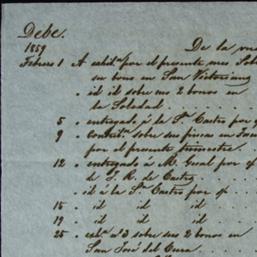 Debe.
De la
1859
Febrero 1 A por el presente mes
su bono en San Victoriano
id id sobre sus 2 bonos en
la Soledad
5 . entregado á la Sra Castro por
9 . sobre sus fincas en
por el presente trimestre
12 . entregado á M. por
de J. R. de Castro
. id á la Sra Castro por
15 . id id id
19 . id id id
25 . no 3 sobre sus 2 bonos en
San José del